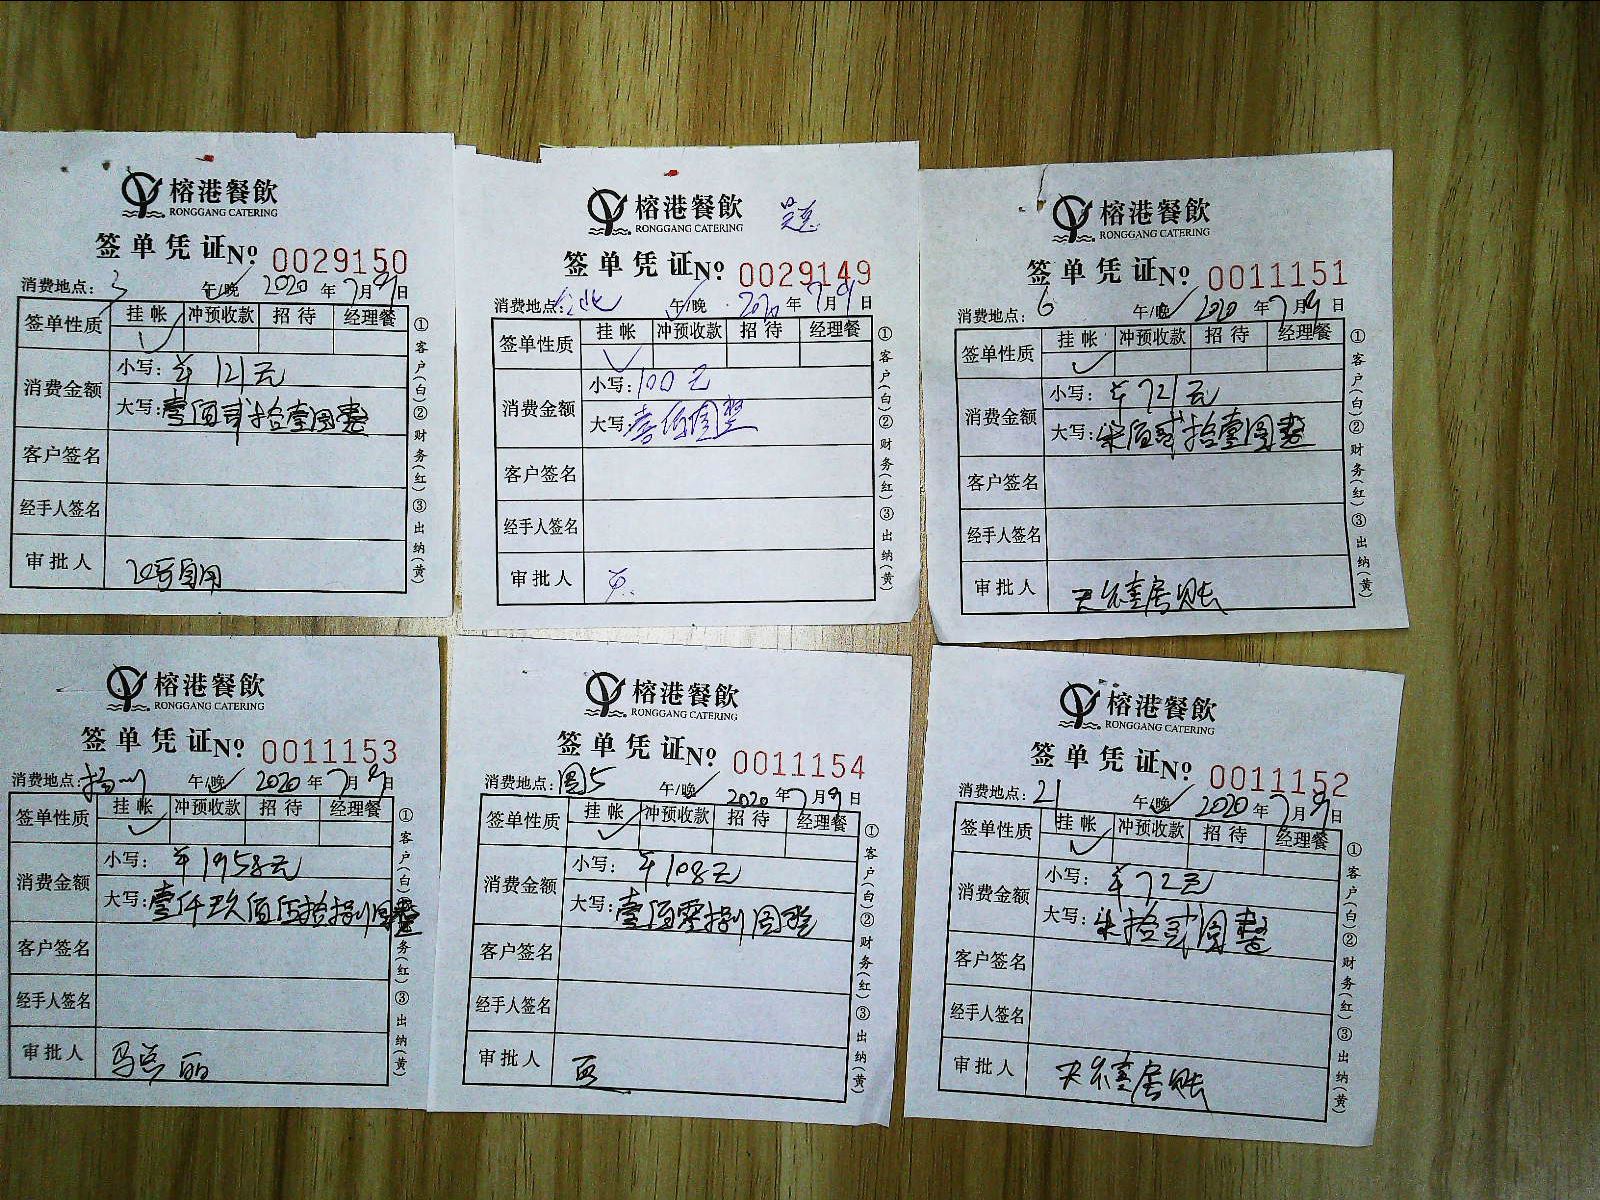 榕港餐飲
RONGGANG CATERING
签单凭证№ 0029150
消费地点: 3 午/晚 2020年7月9日
签单性质 挂帐 冲预收款 招待 经理餐
消费金额
小写: ¥121元
大写: 壹佰贰拾壹圆整
客户签名
经手人签名
审批人
①客户(白)②财务(红)③出纳(黄)
榕港餐飲
RONGGANG CATERING
签单凭证№ 0029149
消费地点: 午/晚 2020年7月9日
签单性质 挂帐 冲预收款 招待 经理餐
消费金额
小写: 100元
大写: 壹佰圆整
客户签名
经手人签名
审批人
①客户(白)②财务(红)③出纳(黄)
榕港餐飲
RONGGANG CATERING
签单凭证№ 0011151
消费地点: 6 午/晚 2020年7月9日
签单性质 挂帐 冲预收款 招待 经理餐
消费金额
小写: ¥721元
大写: 柒佰贰拾壹圆整
客户签名
经手人签名
审批人
①客户(白)②财务(红)③出纳(黄)
榕港餐飲
RONGGANG CATERING
签单凭证№ 0011153
消费地点: 扬州 午/晚 2020年7月9日
签单性质 挂帐 冲预收款 招待 经理餐
消费金额
小写: ¥1958元
大写: 壹仟玖佰伍拾捌圆整
客户签名
经手人签名
审批人 马总 丽
①客户(白)②财务(红)③出纳(黄)
榕港餐飲
RONGGANG CATERING
签单凭证№ 0011154
消费地点: 圆5 午/晚 2020年7月9日
签单性质 挂帐 冲预收款 招待 经理餐
消费金额
小写: ¥108元
大写: 壹佰零捌圆整
客户签名
经手人签名
审批人
①客户(白)②财务(红)③出纳(黄)
榕港餐飲
RONGGANG CATERING
签单凭证№ 0011152
消费地点: 21 午/晚 2020年7月9日
签单性质 挂帐 冲预收款 招待 经理餐
消费金额
小写: ¥72元
大写: 柒拾贰圆整
客户签名
经手人签名
审批人
①客户(白)②财务(红)③出纳(黄)